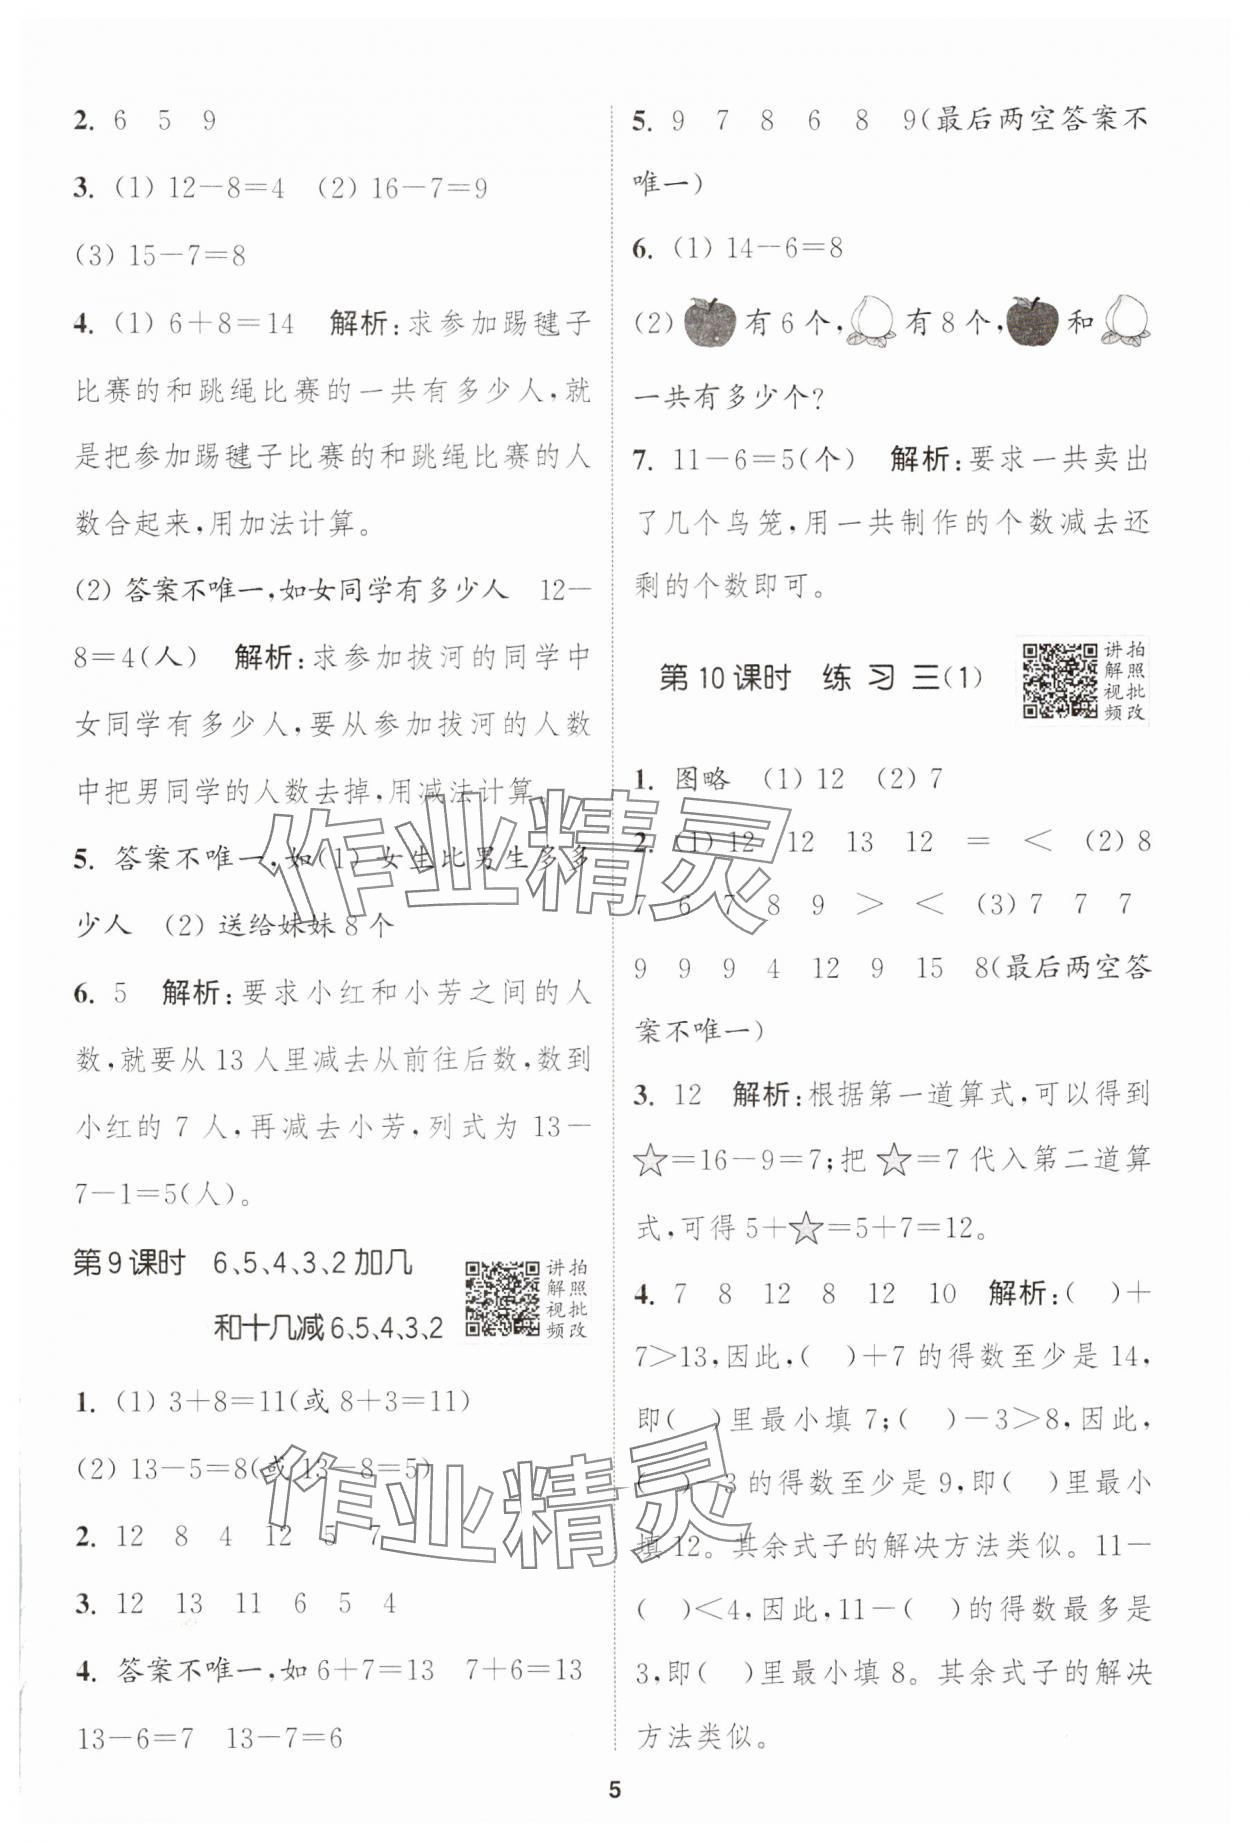 2. 6 5 9
3. (1) 12－8＝4 (2) 16－7＝9
(3) 15－7＝8
4. (1) 6＋8＝14 解析:求参加踢毽子
比赛的和跳绳比赛的一共有多少人,就
是把参加踢毽子比赛的和跳绳比赛的人
数合起来,用加法计算。
(2) 答案不唯一,如女同学有多少人 12－
8＝4(人) 解析:求参加拔河的同学中
女同学有多少人,要从参加拔河的人数
中把男同学的人数去掉,用减法计算。
5. 答案不唯一,如(1) 女生比男生多多
少人 (2) 送给妹妹8个
6. 5 解析:要求小红和小芳之间的人
数,就要从13人里减去从前往后数,数到
小红的7人,再减去小芳,列式为13－
7－1＝5(人)。
第9课时 6、5、4、3、2加几
和十几减6、5、4、3、2
讲解视频 拍照批改
1. (1) 3＋8＝11(或8＋3＝11)
(2) 13－5＝8(或13－8＝5)
2. 12 8 4 12 5 7
3. 12 13 11 6 5 4
4. 答案不唯一,如6＋7＝13 7＋6＝13
13－6＝7 13－7＝6
5. 9 7 8 6 8 9(最后两空答案不
唯一)
6. (1) 14－6＝8
(2) 有6个, 有8个, 和
一共有多少个?
7. 11－6＝5(个) 解析:要求一共卖出
了几个鸟笼,用一共制作的个数减去还
剩的个数即可。
第10课时 练习三(1)
讲解视频 拍照批改
1. 图略 (1) 12 (2) 7
2. (1) 12 12 13 12 ＝ ＜ (2) 8
7 6 7 8 9 ＞ ＜ (3) 7 7 7
9 9 9 4 12 9 15 8(最后两空答
案不唯一)
3. 12 解析:根据第一道算式,可以得到
☆＝16－9＝7;把☆＝7代入第二道算
式,可得5＋☆＝5＋7＝12。
4. 7 8 12 8 12 10 解析:( )＋
7＞13,因此,( )＋7的得数至少是14,
即( )里最小填7;( )－3＞8,因此,
( )－3的得数至少是9,即( )里最小
填12。其余式子的解决方法类似。11－
( )＜4,因此,11－( )的得数最多是
3,即( )里最小填8。其余式子的解决
方法类似。
5
作业精灵
作业精灵